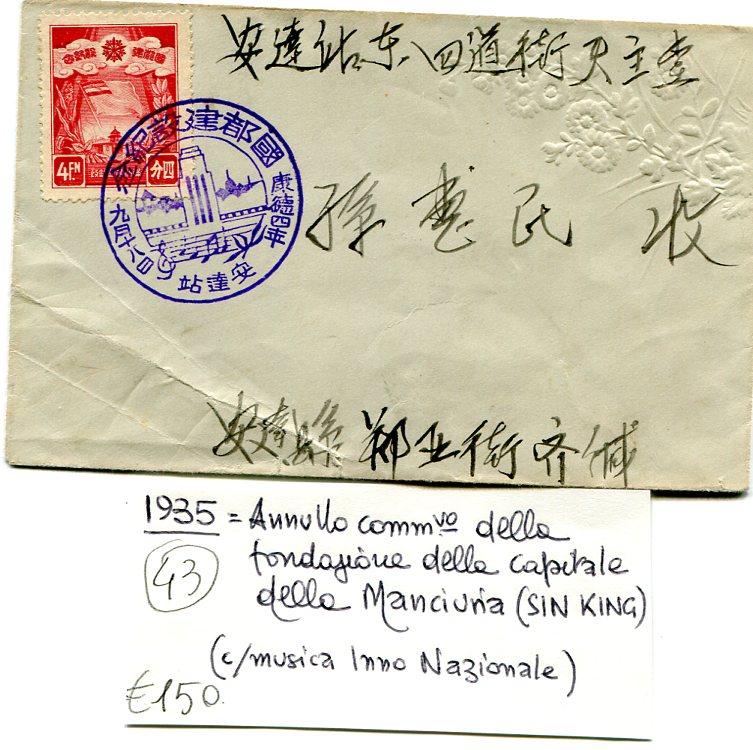 安達站东四道街天主堂
國都建設紀念
4FN
分四
國都建設紀念
康德四年
九月十六日
安達站
孫憲民 收
安達縣 街齐缄
1935 = Annullo comm.vo della
fondazione della capitale
43
della Manciuria (SIN KING)
(c/musica Inno Nazionale)
€150